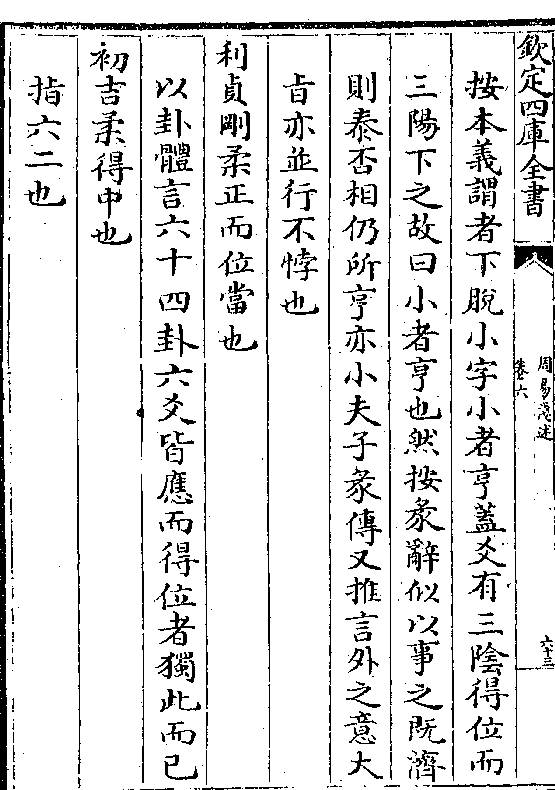 欽定四庫全書
周易淺述
卷六
六十三
按本義謂者下脫小字小者亨蓋爻有三陰得位而
三陽下之故曰小者亨也然按彖辭似以事之既濟
則泰否相仍所亨亦小夫子彖傳又推言外之意大
旨亦並行不悖也
利貞剛柔正而位當也
以卦體言六十四卦六爻皆應而得位者獨此而已
初吉柔得中也
指六二也